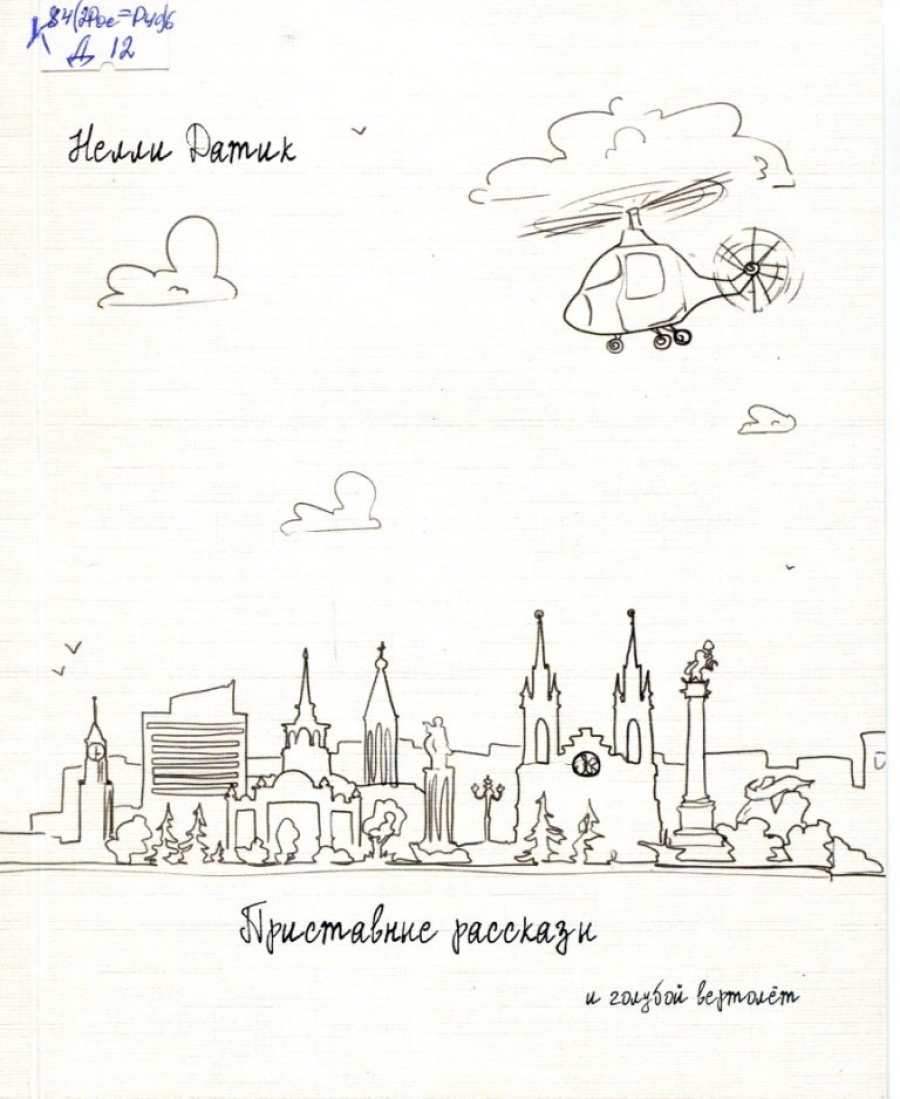 84(2Рос=Рус)6
Д 12
Нелли Датик
Приставные рассказы
и голубой вертолёт